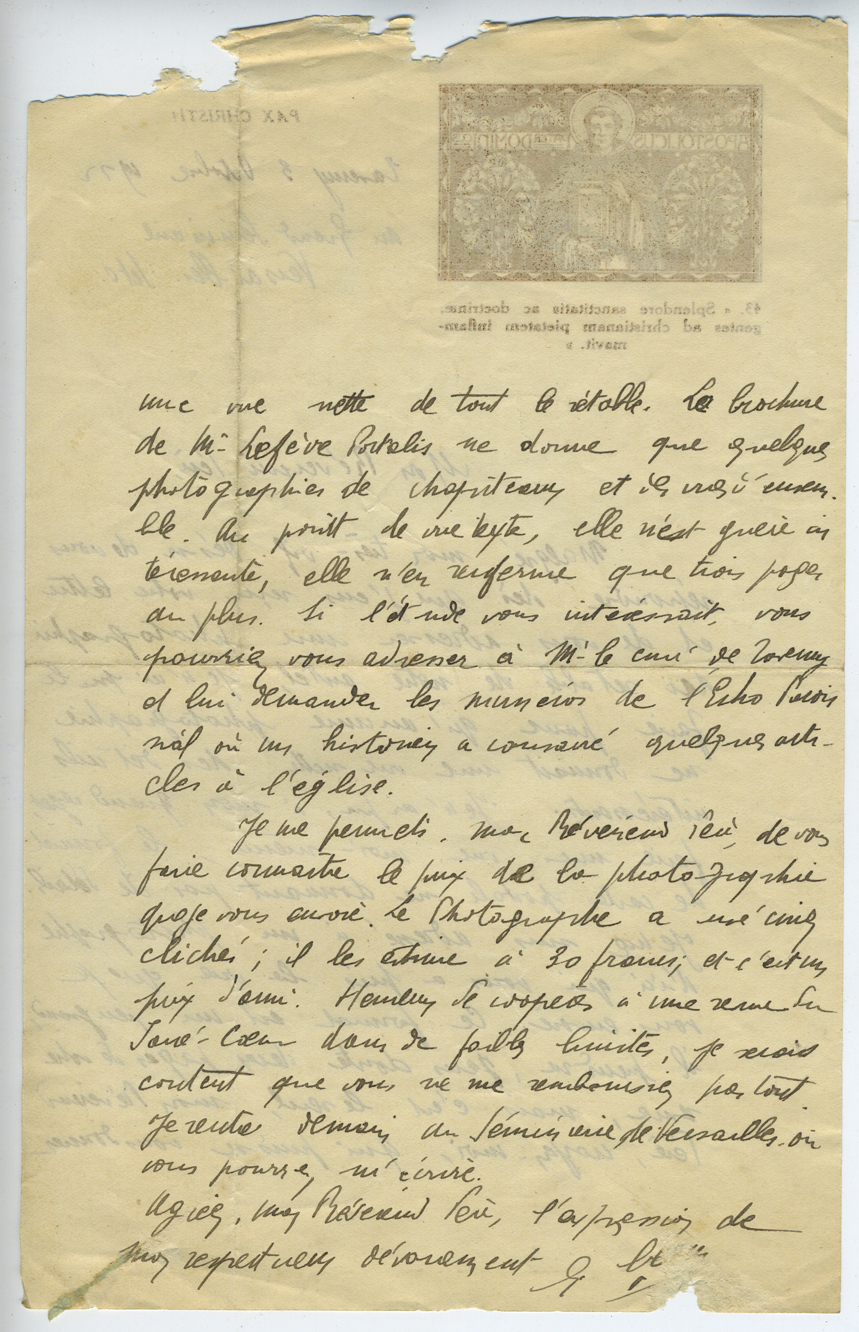 une vue nette de tout le rétable. La brochure
de Mr Lefève Portalis ne donne que quelques
photographies de chapiteaux et des vues d'ensem-
ble. Au point de vue texte, elle n'est guère in
téressante, elle n'en renferme que trois pages
au plus. Si l'étude vous intéressait, vous
pourriez vous adresser à Mr le curé de Taverny
et lui demander les numéros de l'Echo Parois
sial où un historien a consacré quelques arti-
cles à l'église.
Je me permets, mon Révérend Père, de vous
faire connaître le prix de la photographie
que je vous envoie. Le Photographe a usé cinq
clichés ; il les estime à 30 francs; et c'est un
prix d'ami. Heureux de coopérer à une revue du
Sacré-Coeur dans de faibles limites, je serais
content que vous ne me remboursiez pas tout.
Je rentre demain au Séminaire de Versailles où
vous pourrez m'écrire.
Agréez, mon Révérend Père, l'expression de
mon respectueux dévouement
PAX CHRISTI!
Taverny 3 Octobre 1922
au Grand Séminaire
Versailles
APOSTOLICUS DOMINI
43. « Splendore sanctitatis ac doctrinæ.
gentes ad christianam pietatem inflam-
mavit. »